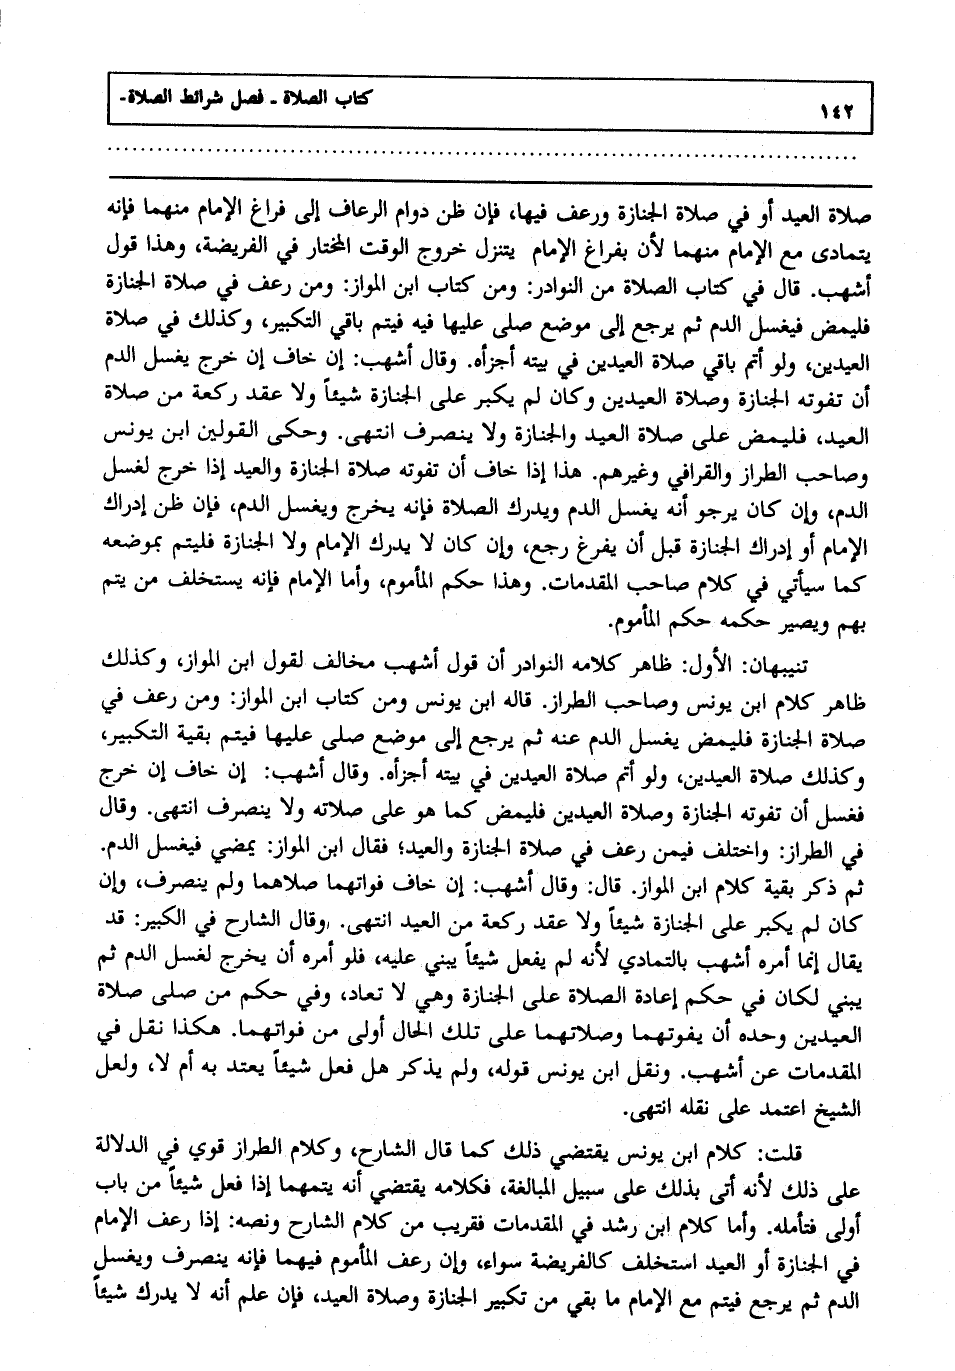 ١٤٢
كتاب الصلاة ـ فصل شرائط الصلاة-
صلاة العيد أو في صلاة الجنازة ورعف فيها، فإن ظن دوام الرعاف إلى فراغ الإمام منهما فإنه
يتمادى مع الإمام منهما لأن بفراغ الإمام يتنزل خروج الوقت المختار في الفريضة، وهذا قول
أشهب. قال في كتاب الصلاة من النوادر: ومن كتاب ابن المواز: ومن رعف في صلاة الجنازة
فليمض فيغسل الدم ثم يرجع إلى موضع صلى عليها فيه فيتم باقي التكبير، وكذلك في صلاة
العيدين، ولو أتم باقي صلاة العيدين في بيته أجزأه. وقال أشهب: إن خاف إن خرج يغسل الدم
أن تفوته الجنازة وصلاة العيدين وكان لم يكبر على الجنازة شيئاً ولا عقد ركعة من صلاة
العيد، فليمض على صلاة العيد والجنازة ولا ينصرف انتهى. وحكى القولين ابن يونس
وصاحب الطراز والقرافي وغيرهم. هذا إذا خاف أن تفوته صلاة الجنازة والعيد إذا خرج لغسل
الدم، وإن كان يرجو أنه يغسل الدم ويدرك الصلاة فإنه يخرج ويغسل الدم، فإن ظن إدراك
الإمام أو إدراك الجنازة قبل أن يفرغ رجع، وإن كان لا يدرك الإمام ولا الجنازة فليتم بموضعه
كما سيأتي في كلام صاحب المقدمات. وهذا حكم المأموم، وأما الإمام فإنه يستخلف من يتم
بهم ويصير حكمه حكم المأموم.
تنبيهان: الأول: ظاهر كلامه النوادر أن قول أشهب مخالف لقول ابن المواز، وكذلك
ظاهر كلام ابن يونس وصاحب الطراز. قاله ابن يونس ومن كتاب ابن المواز: ومن رعف في
صلاة الجنازة فليمض يغسل الدم عنه ثم يرجع إلى موضع صلى عليها فيتم بقية التكبير،
وكذلك صلاة العيدين، ولو أتم صلاة العيدين في بيته أجزأه. وقال أشهب: إن خاف إن خرج
فغسل أن تفوته الجنازة وصلاة العيدين فليمض كما هو على صلاته ولا ينصرف انتهى. وقال
في الطراز: واختلف فيمن رعف في صلاة الجنازة والعيد؛ فقال ابن المواز: يمضي فيغسل الدم.
ثم ذكر بقية كلام ابن المواز. قال: وقال أشهب: إن خاف فواتهما صلاهما ولم ينصرف، وإن
كان لم يكبر على الجنازة شيئاً ولا عقد ركعة من العيد انتهى. وقال الشارح في الكبير: قد
يقال إنما أمره أشهب بالتمادي لأنه لم يفعل شيئاً يبني عليه، فلو أمره أن يخرج لغسل الدم ثم
يبني لكان في حكم إعادة الصلاة على الجنازة وهي لا تعاد، وفي حكم من صلى صلاة
العيدين وحده أن يفوتهما وصلاتهما على تلك الحال أولى من فواتهما. هكذا نقل في
المقدمات عن أشهب. ونقل ابن يونس قوله، ولم يذكر هل فعل شيئاً يعتد به أم لا، ولعل
الشيخ اعتمد على نقله انتهى.
قلت: كلام ابن يونس يقتضي ذلك كما قال الشارح، وكلام الطراز قوي في الدلالة
على ذلك لأنه أتى بذلك على سبيل المبالغة، فكلامه يقتضي أنه يتمهما إذا فعل شيئاً من باب
أولى فتأمله. وأما كلام ابن رشد في المقدمات فقريب من كلام الشارح ونصه: إذا رعف الإمام
في الجنازة أو العيد استخلف كالفريضة سواء، وإن رعف المأموم فيهما فإنه ينصرف ويغسل
الدم ثم يرجع فيتم مع الإمام ما بقي من تكبير الجنازة وصلاة العيد، فإن علم أنه لا يدرك شيئاً